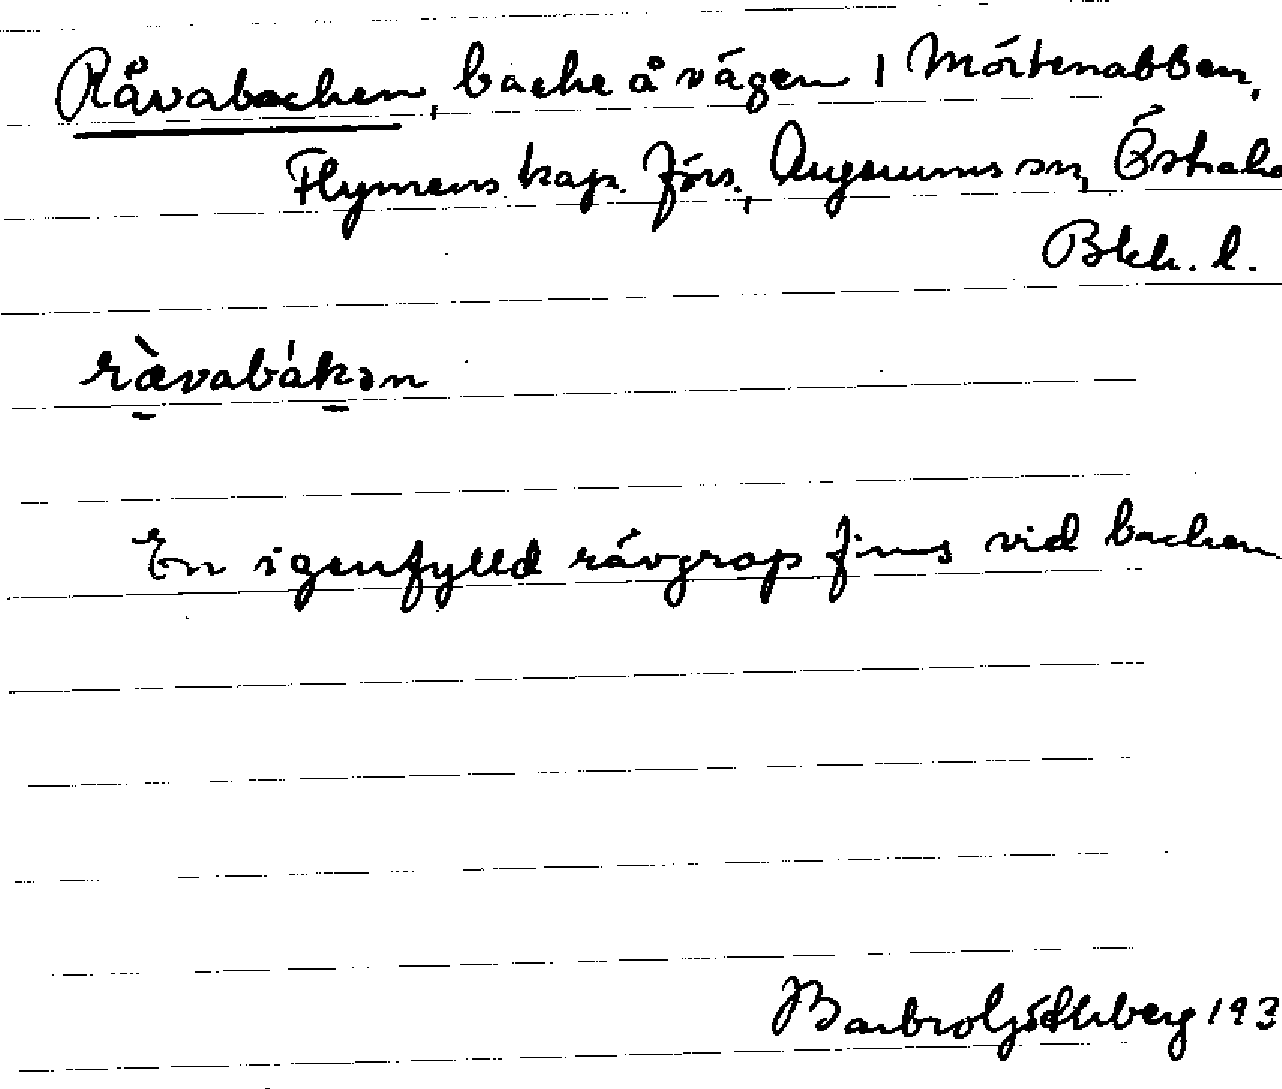 Råvabacken, backe å vägen i Mörtenabben,
Flymens kap. förs., Augerums sn, Östra hd
Blek. l.
ràvabákən
En igenfylld rävgrop finns vid backen.
Barbro Söderberg 193